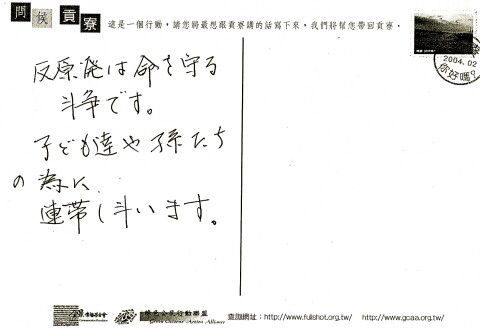 問候貢寮
這是一個行動，請您將最想跟貢寮講的話寫下來，我們將幫您帶回貢寮。
2004.02
你好嗎?
反原発は命を守る
斗争です。
子ども達や孫たち
の為に
連帯し斗います。
綠色公民行動聯盟
Green Citizens' Action Alliance
查詢網址：http://www.fullshot.org.tw/ http://www.gcaa.org.tw/